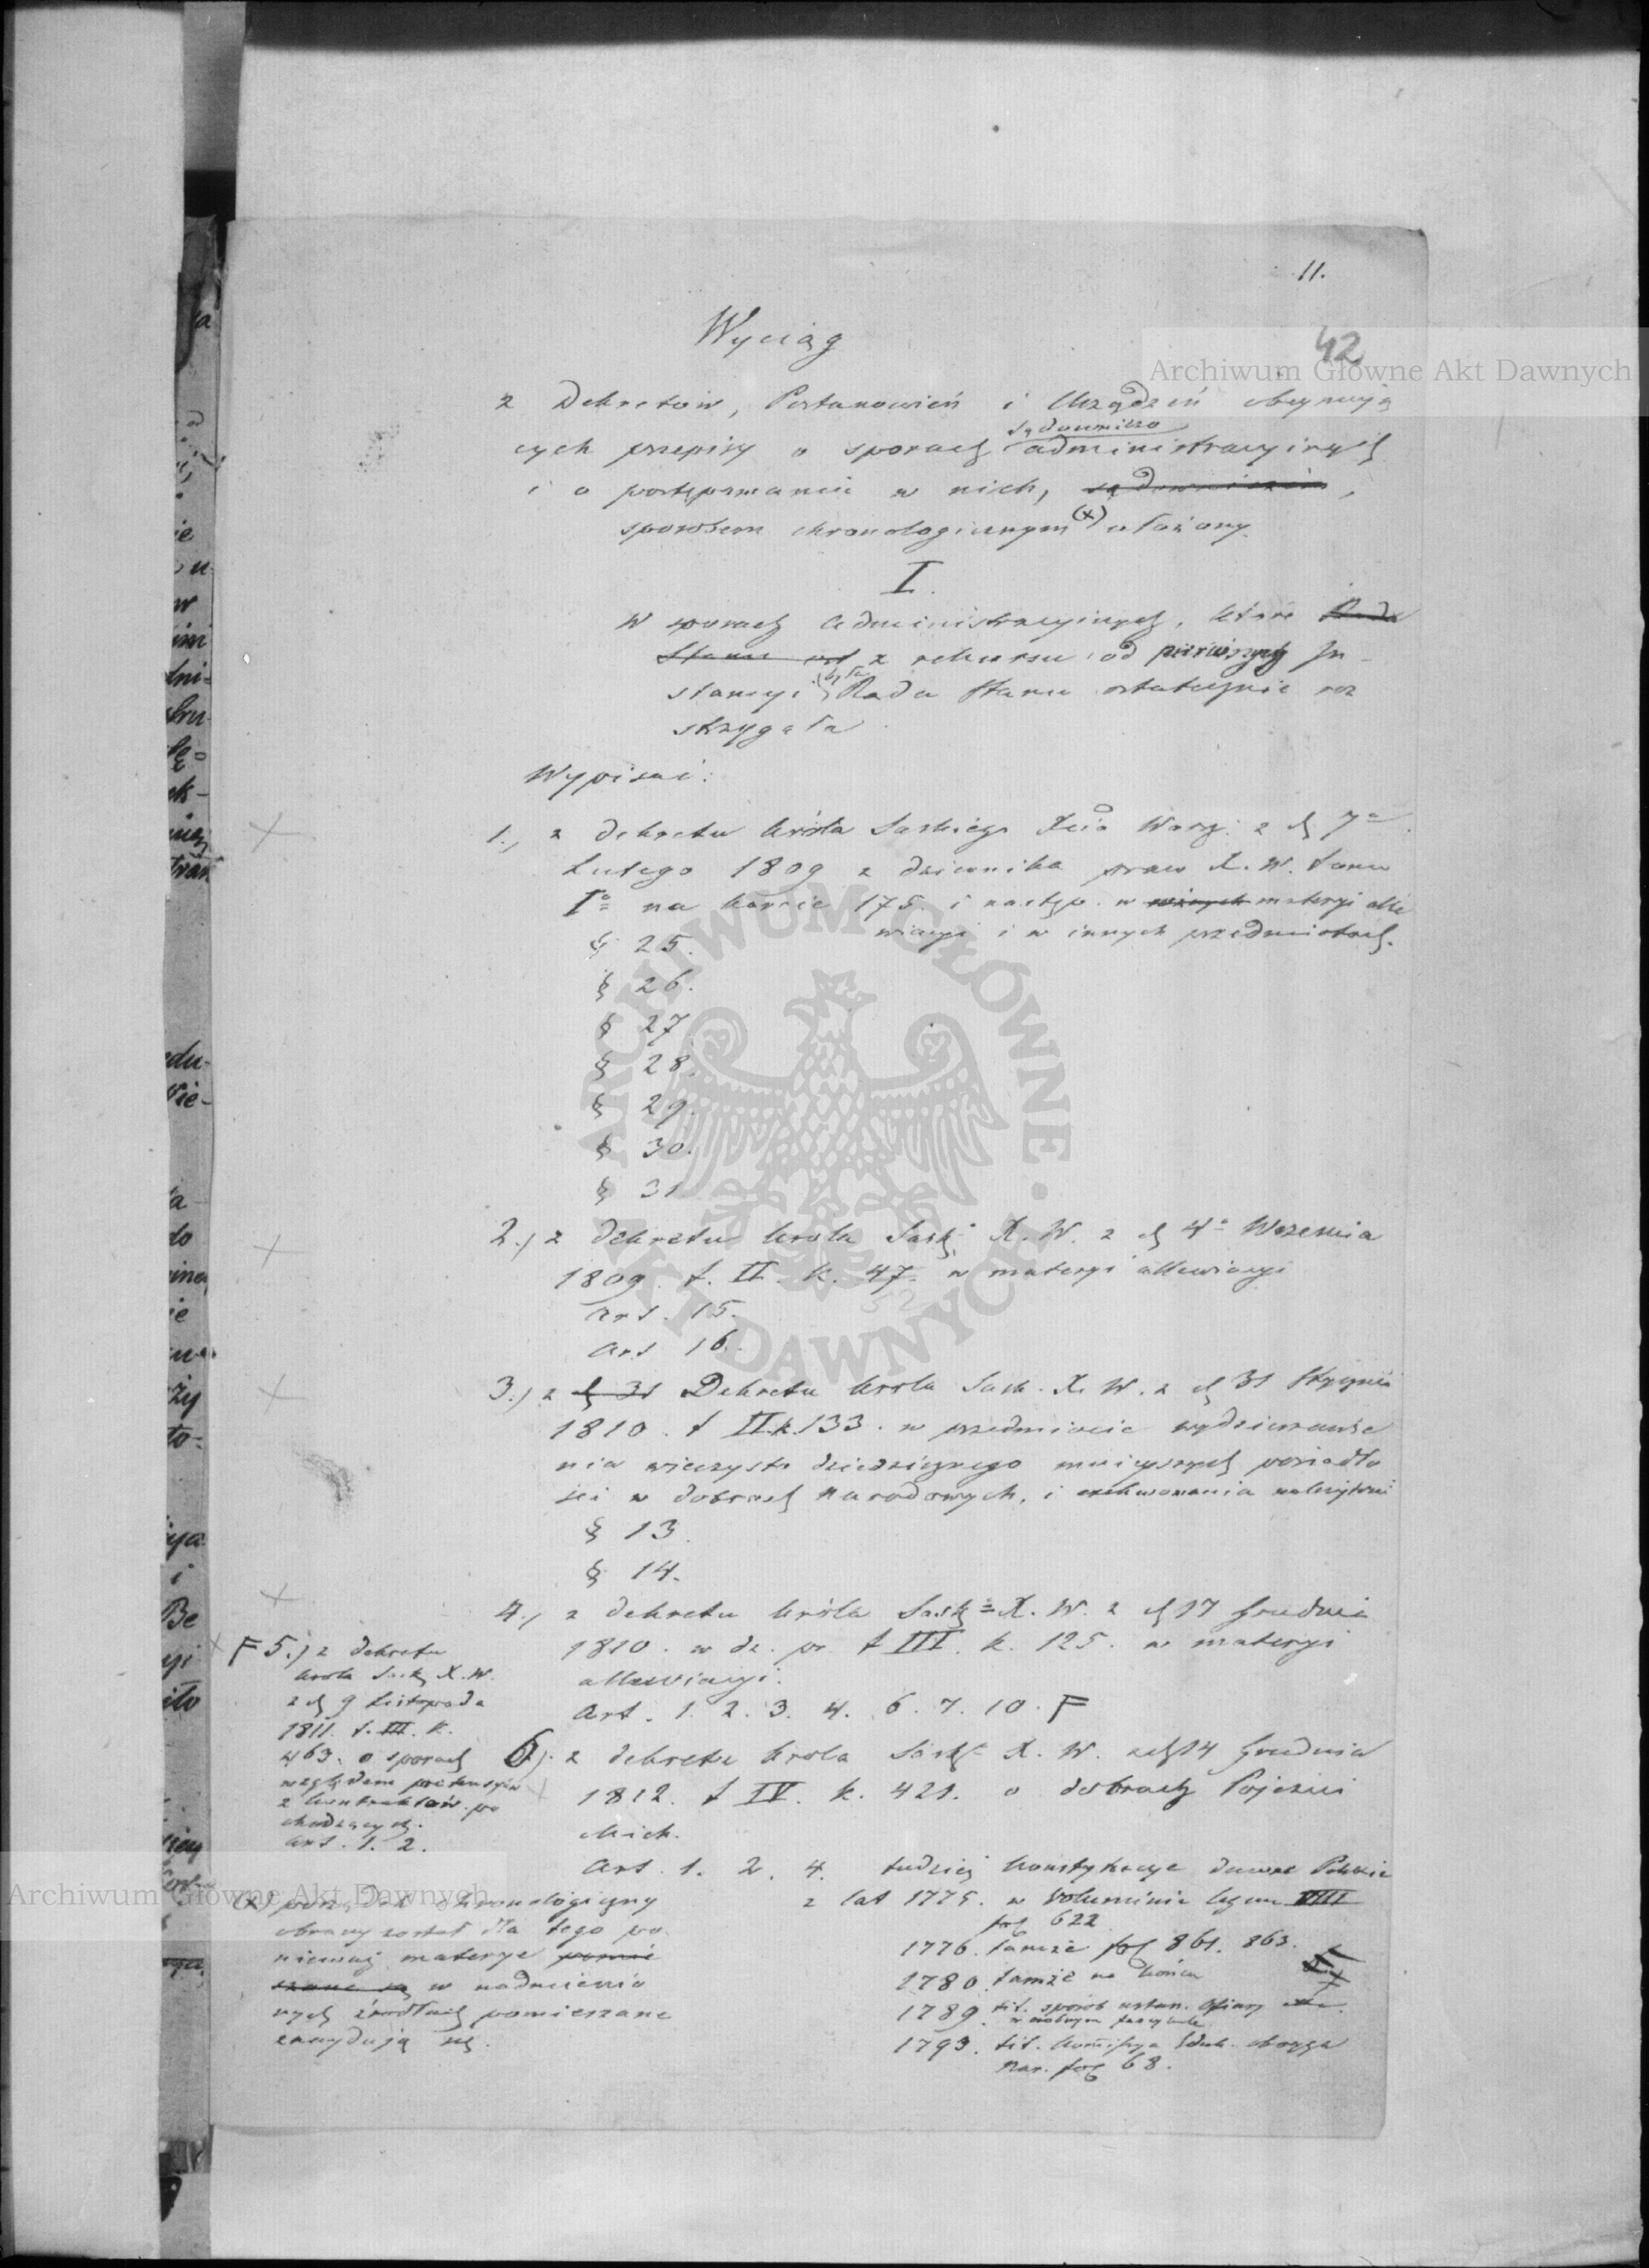 11.
42
Wyciąg
z Dekretow, Postanowień i Urządzeń obeymują
cych przepisy o sporach sądowniczo administracyinych
i o postępowaniu w nich, sądowniczém,
sposobem chronologicznym (x) ułożony.
I.
W sporach administracyinych, które Rada
Stanu z rekursu od pierwszych In-
stancyi Rada Stanu ostatecznie roz
strzygała
Wypisać:
1., z dekretu króla Saskiego Xcia Warsz: z d 7o
Lutego 1809 z dziennika praw X. W. tomu
Io na karcie 175. i następ. w materyi alle
wiacyi i w innych przedmiotach.
§ 25.
§ 26.
§ 27.
§ 28.
§ 29.
§ 30.
§ 31.
2., z dekretu krola Sask: X. W. z d 4o Wrzesnia
1809. t. II. k. 47. w materyi allewiacyi
art. 15.
art 16.
3., z d 31 Dekretu krola Sask. X. W. z d 31 Stycznia
1810. t II. k. 133. w przedmiocie wydzierzawie
nia wieczysto dziedzicznego mnieyszych posiadło
ści w dobrach narodowych, i exekwowania należytości
§ 13.
§ 14.
4., z dekretu króla Sask= X. W. z d 17 Grudnia
1810. w dz. pr. t III. k. 125. w materyi
allewiacyi.
art. 1. 2. 3. 4. 6. 7. 10. F
F 5.) z dekretu
krola Sask X. W.
z d 9 Listopada
1811. t. III. k.
463. o sporach
względem pretensyów
z kontraktów po
chodzących.
art. 1. 2.
6). z dekretu krola Sask= X. W. z d 14 Grudnia
1812. t IV. k. 421. o dobrach Pojezui
ckich.
art. 1. 2. 4. tudzież konstytucye dawne Polskie
z lat 1775. w Voluminie legum VIII
fol 622
1776. tamże fol 861. 863.
1780. tamże na końcu
1789. tit. sposób ustan. Ofiary
w osobnym fascykule
1793. tit. Kommissya Eduk. oboyga
Nar. fol 68.
(x) porządek chronologiczny
obrany został dla tego po
nieważ materye pomie
szane są w nadmienio
nych źrodłach pomieszane
znaydują się.
Archiwum Główne Akt Dawnych
ARCHIWUM GŁÓWNE AKT DAWNYCH
Archiwum Główne Akt Dawnych